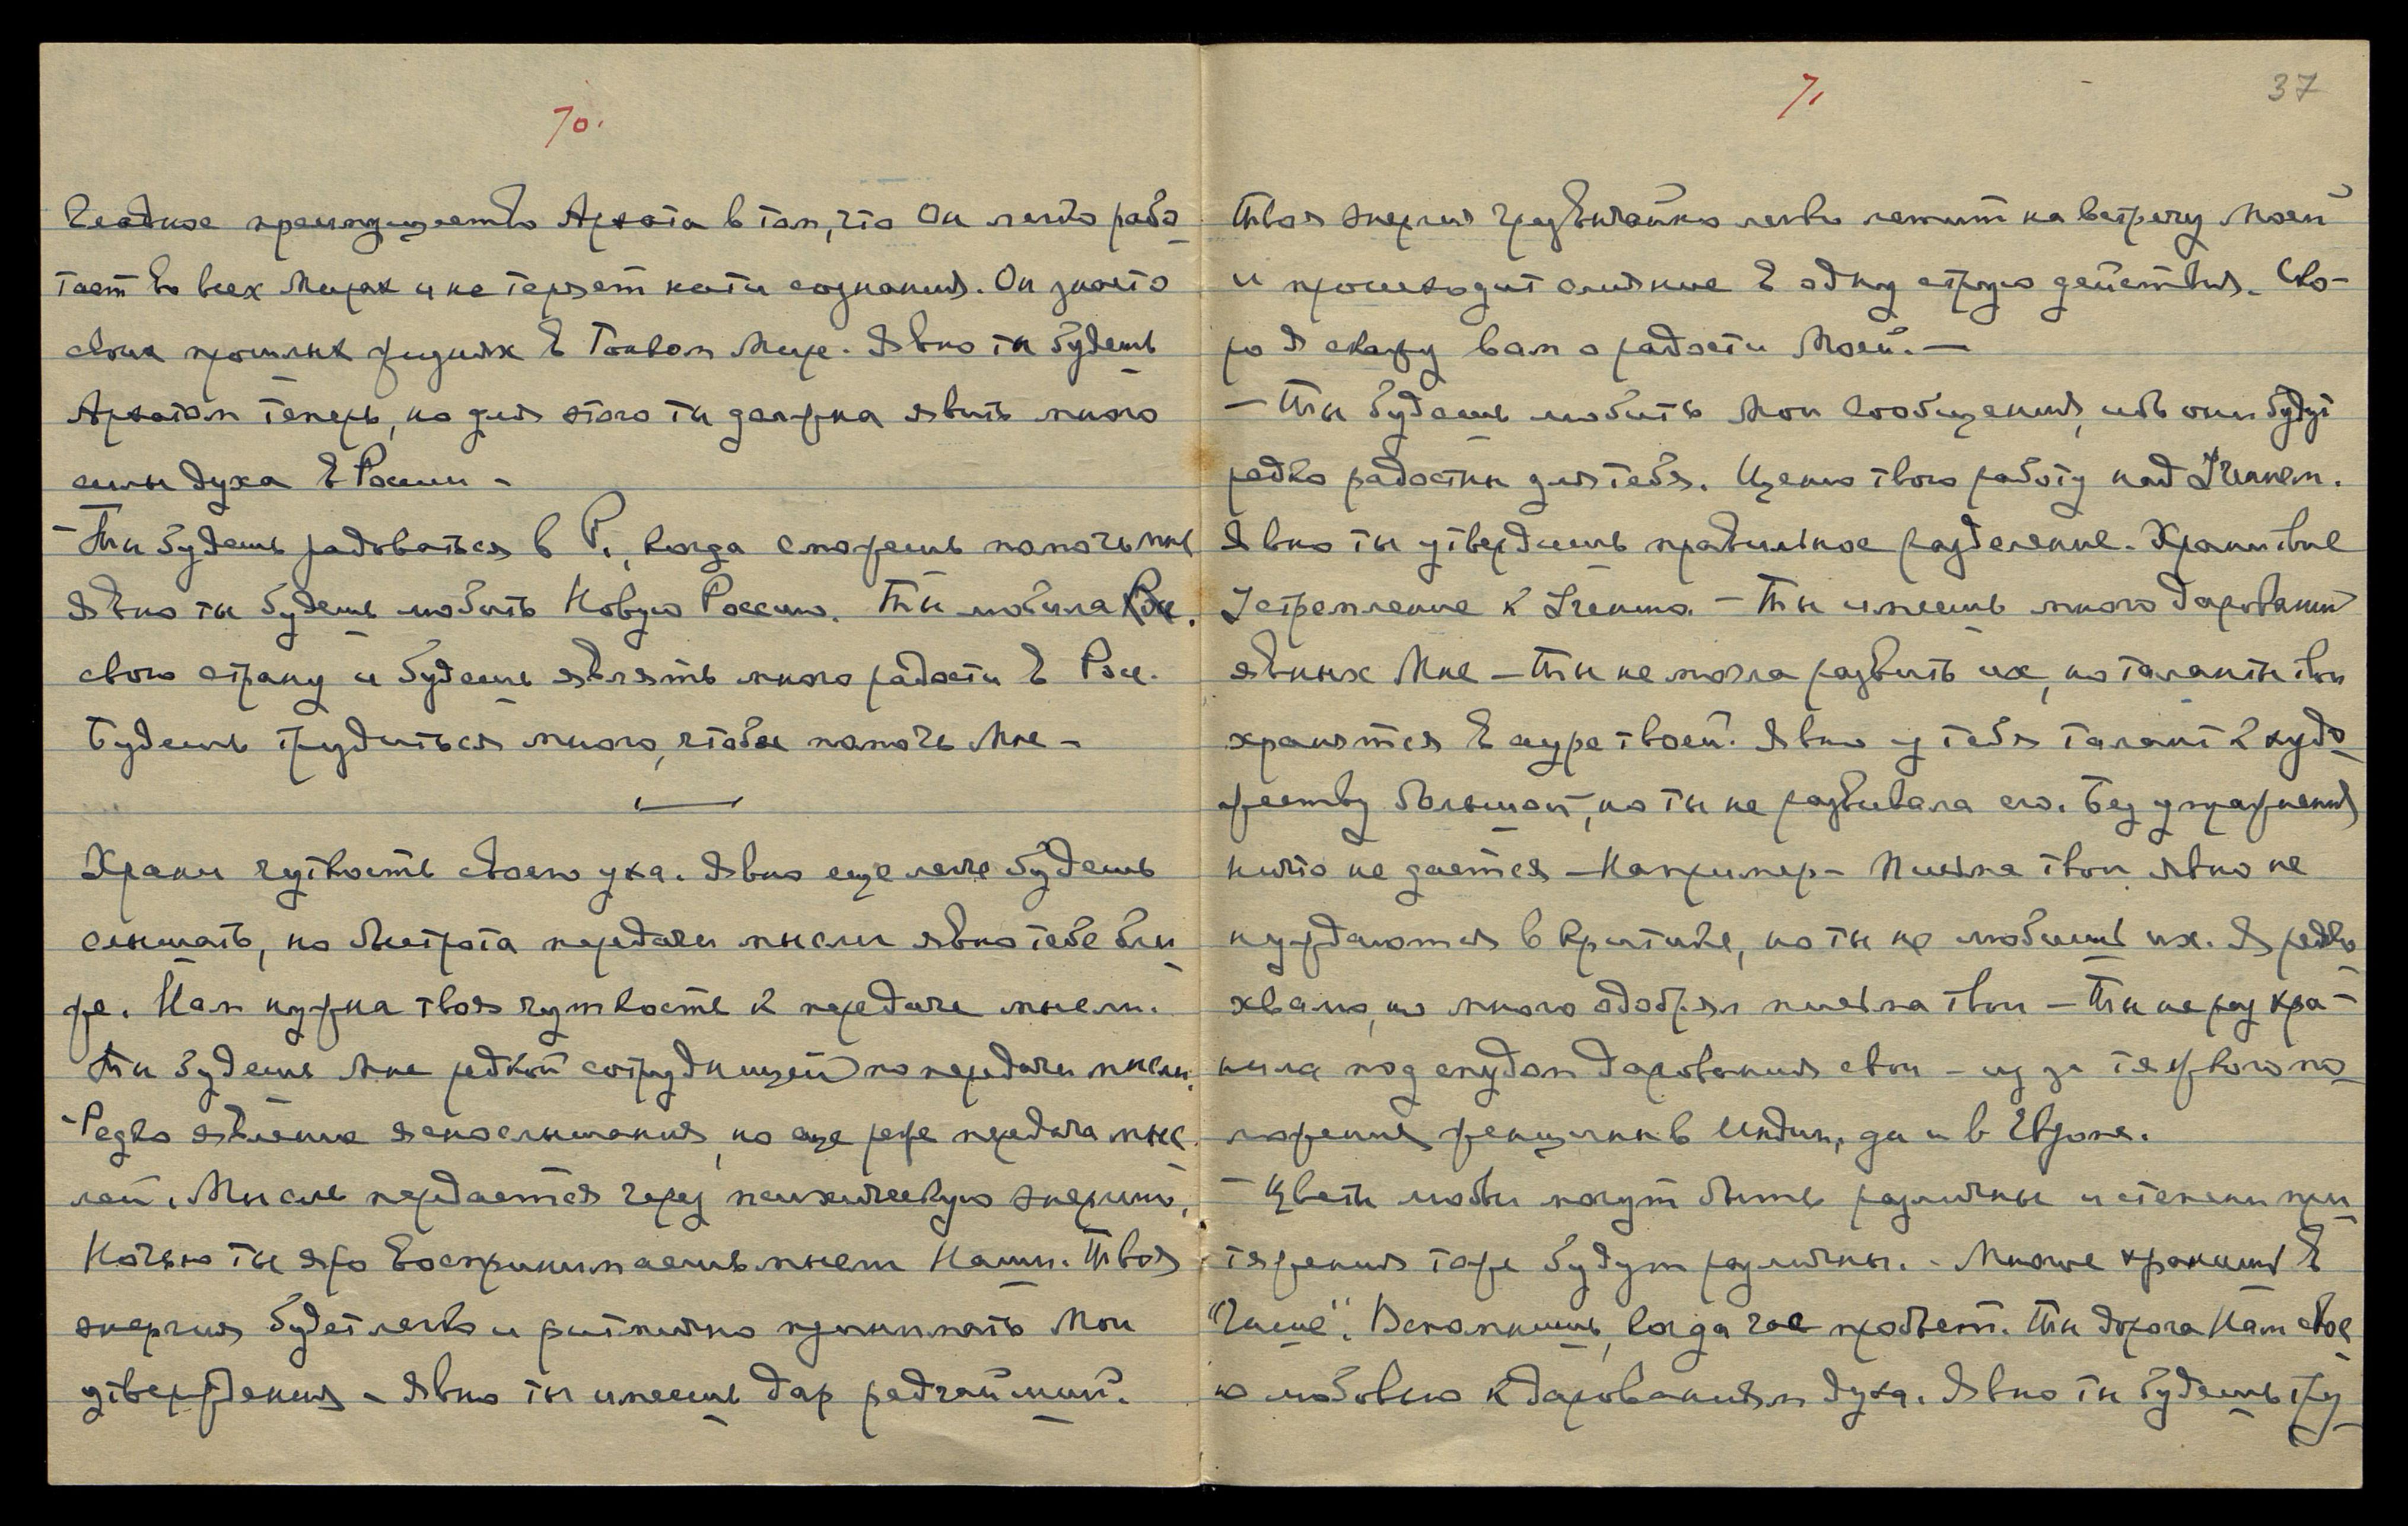 70.
Главное преимущество Архата в том, что Он легко рабо
тает во всех Мирах и не теряет нити сознания. Он знает о
своих прошлых жизнях в Тонком Мире. Явно ты будешь
Архатом теперь, но для этого ты должна явить много
силы духа в России –
– Ты будешь радоваться в Р., когда сможешь помочь мне
Явно ты будешь любить Новую Россию. Ты любила Рос.
свою страну и будешь являть много радости в Рос.
Будешь трудиться много, чтобы помочь Мне –
Храни чуткость своего уха. Явно еще легче будешь
слышать, но быстрота передачи мысли явно тебе бли
же. Нам нужна твоя чуткость к передаче мысли.
Ты будешь Мне редкой сотрудницей по передачи мысли.
– Редко явление яснослышания, но еще реже передача мыс
лей. Мысль передается через психическую энергию,
Ночью ты яро воспринимаешь мысли Наши. Твоя
энергия будет легко и ритмично принимать Мои
утверждения – Явно ты имеешь дар редчайший.
71
37
Твоя энергия чрезвычайно легко летит на встречу Моей
и происходит слияние в одну струю действия. Ско–
ро Я скажу вам о радости Моей. —
– Ты будешь любить Мои Сообщения, ибо они будут
редко радостны для тебя. Ценю твою работу над Учением.
Явно ты утвердишь правильное разделение. Храни твое
Устремление к Учению. – Ты имеешь много дарований
явных Мне – Ты не могла развить их, но таланты твои
хранятся в ауре твоей. Явно у тебя талант к худо
жеству большой, но ты не развивала его. Без упражнения
ничто не дается – Например – Письма твои явно не
нуждаются в критике, но ты не любишь их. Я редко
хвалю, но много одобрял письма твои – Ты не раз хра–
нила под спудом дарования свои – из за тяжкого по
ложения женщины в Индии, да и в Европе.
– Цветы любви могут быть различны и степени при
тяжения тоже будут различны. – Многое хранишь в
"Чаше". Вспомнишь, когда час пробьет. Ты дорога Нам свое
ю любовью к дарованиям духа. Явно ты будешь тру